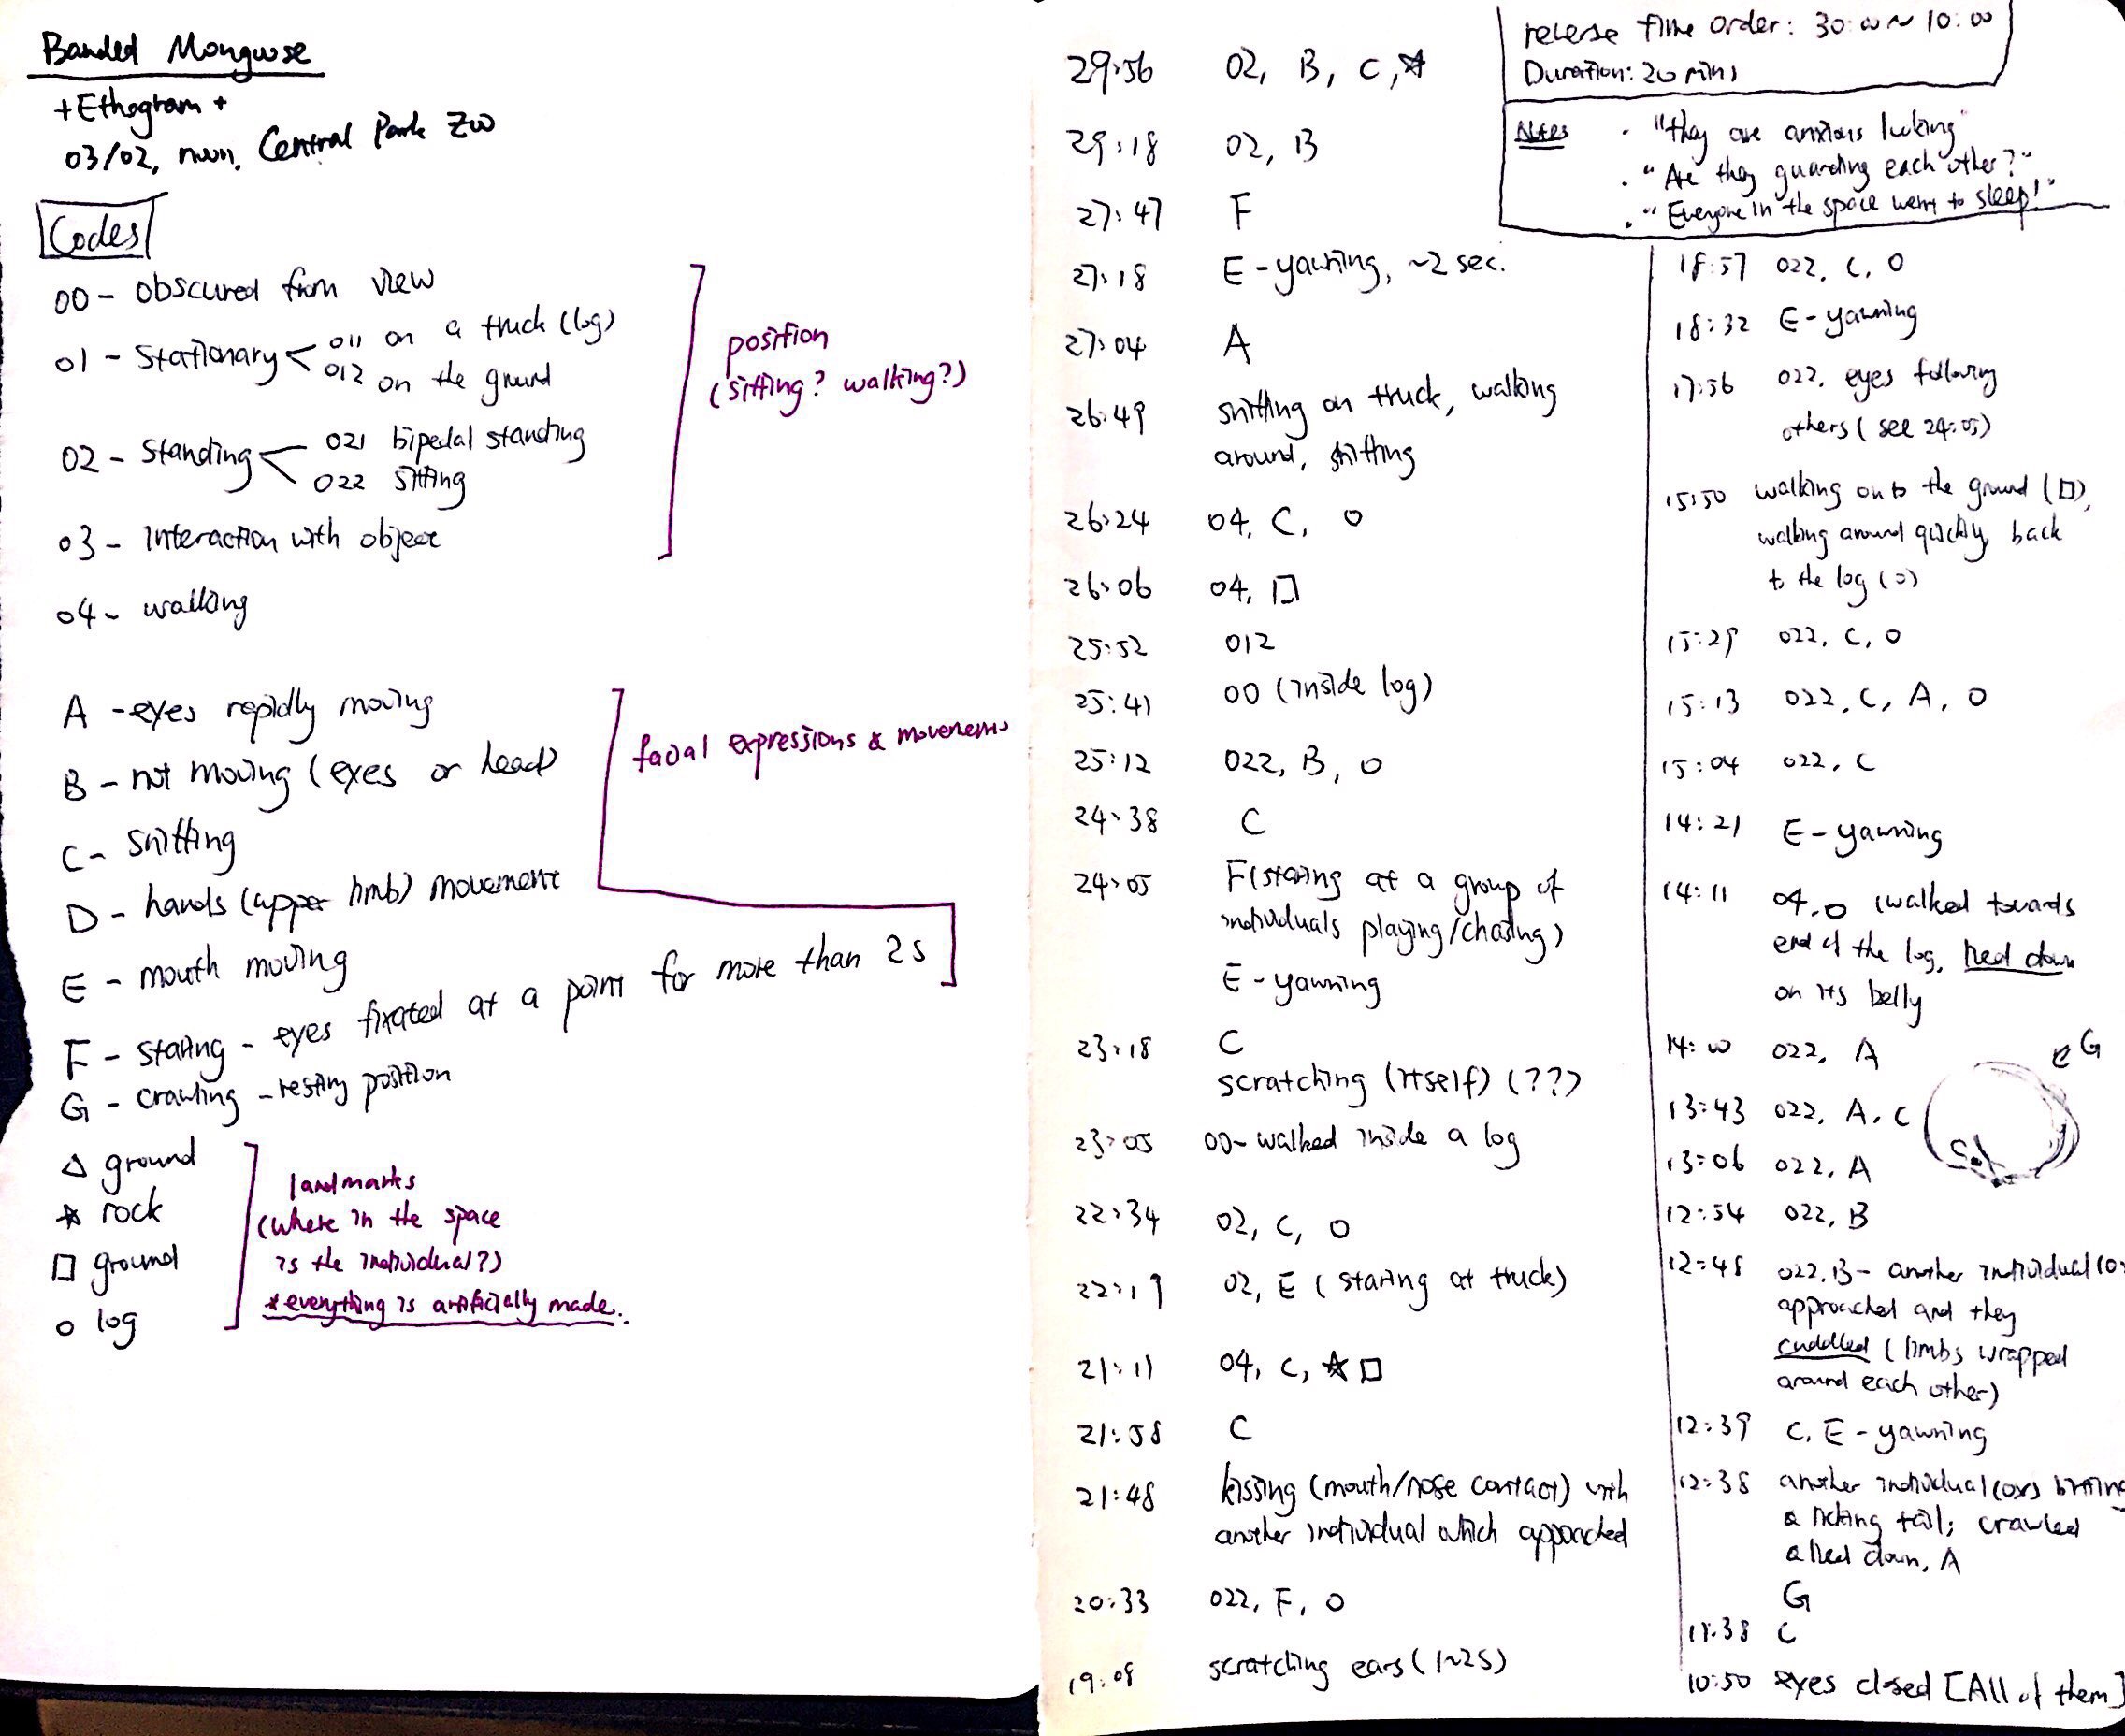 Banded Mongoose
+Ethogram+
03/02, noon, Central Park Zoo
Codes
00 - obscured from view
01 - Stationary < 011 on a truck (log)
012 on the ground
02 - Standing < 021 bipedal standing
022 sitting
03 - Interaction with object
04 - walking
position
(sitting? walking?)
A - eyes rapidly moving
B - not moving (eyes or head)
C - sniffing
D - hands (upper limb) movement
E - mouth moving
F - staring - eyes fixated at a point for more than 2s
G - crawling - resting position
facial expressions & movements
△ ground
☆ rock
□ ground
○ log
landmarks
(where in the space
is the individual?)
*everything is artificially made.
reverse time order: 30:00 ~ 10:00
Duration: 20 mins
Notes
· "they are anxious looking"
· "Are they guarding each other?"
· "Everyone in the space went to sleep!"
29:56 02, B, C, ☆
29:18 02, B
27:47 F
27:18 E - yawning, ~2 sec.
27:04 A
26:49 sniffing on truck, walking
around, sniffing
26:24 04, C, ○
26:06 04, □
25:52 012
25:41 00 (inside log)
25:12 022, B, ○
24:38 C
24:05 F (staring at a group of
individuals playing/chasing)
E - yawning
23:18 C
scratching (itself) (??)
23:05 00 - walked inside a log
22:34 02, C, ○
22:19 02, E (staring at truck)
21:11 04, C, ☆ □
21:58 C
21:48 kissing (mouth/nose contact) with
another individual which approached
20:33 022, F, ○
19:08 scratching ears (1~2s)
18:57 022, C, ○
18:32 E - yawning
17:56 022, eyes following
others (see 24:05)
15:50 walking onto the ground (□),
walking around quickly, back
to the log (○)
15:29 022, C, ○
15:13 022, C, A, ○
15:04 022, C
14:21 E - yawning
14:11 04, ○ (walked towards
end of the log, lied down
on its belly
14:00 022, A
G
13:43 022, A, C
13:06 022, A
12:54 022, B
12:48 022, B - another individual
approached and they
cuddled (limbs wrapped
around each other)
12:39 C, E - yawning
12:38 another individual
& licking tail; crawled
& lied down, A
G
11:38 C
10:50 eyes closed [All of them]